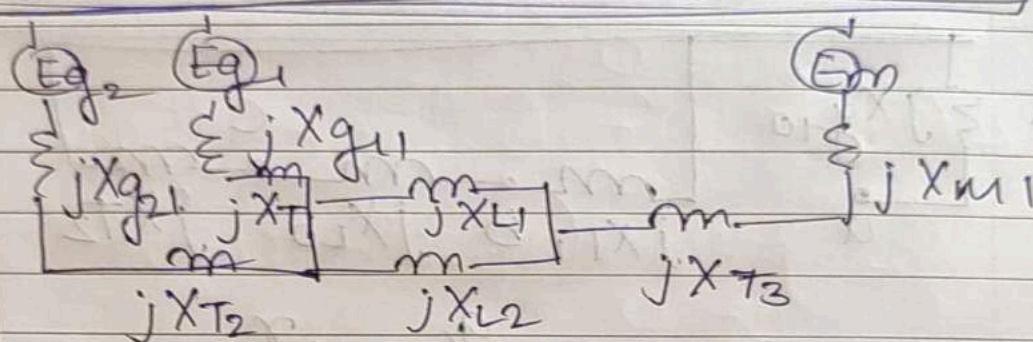 Eg2 Eg1 Em
jXg11
jXg21 jXT jXL1 jXm1
jXT2 jXL2 jXT3